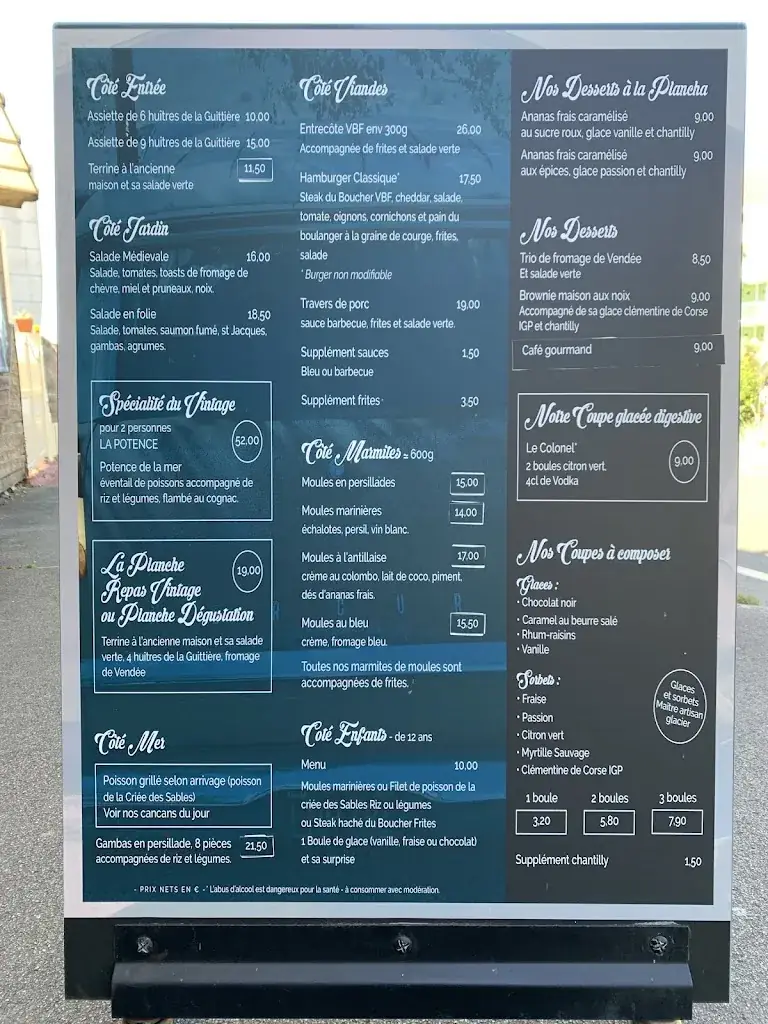 Côté Entrée
Assiette de 6 huîtres de la Guittière 10,00
Assiette de 9 huîtres de la Guittière 15,00
Terrine à l'ancienne 11,50
maison et sa salade verte
Côté Jardin
Salade Médievale 16,00
Salade, tomates, toasts de fromage de
chèvre, miel et pruneaux, noix.
Salade en folie 18,50
Salade, tomates, saumon fumé, st Jacques,
gambas, agrumes.
Spécialité du Vintage
pour 2 personnes
LA POTENCE 52,00
Potence de la mer
éventail de poissons accompagné de
riz et légumes, flambé au cognac.
La Planche 19,00
Repas Vintage
ou Planche Dégustation
Terrine à l'ancienne maison et sa salade
verte, 4 huîtres de la Guittière, fromage
de Vendée
Côté Mer
Poisson grillé selon arrivage (poisson
de la Criée des Sables)
Voir nos cancans du jour
Gambas en persillade, 8 pièces 21,50
accompagnées de riz et légumes.
Côté Viandes
Entrecôte VBF env 300g 26,00
Accompagnée de frites et salade verte
Hamburger Classique* 17,50
Steak du Boucher VBF, cheddar, salade,
tomate, oignons, cornichons et pain du
boulanger à la graine de courge, frites,
salade
* Burger non modifiable
Travers de porc 19,00
sauce barbecue, frites et salade verte.
Supplément sauces 1,50
Bleu ou barbecue
Supplément frites 3,50
Côté Marmites ≃ 600g
Moules en persillades 15,00
Moules marinières 14,00
échalotes, persil, vin blanc.
Moules à l'antillaise 17,00
crème au colombo, lait de coco, piment,
dés d'ananas frais.
Moules au bleu 15,50
crème, fromage bleu.
Toutes nos marmites de moules sont
accompagnées de frites.
Côté Enfants - de 12 ans
Menu 10,00
Moules marinières ou Filet de poisson de la
criée des Sables Riz ou légumes
ou Steak haché du Boucher Frites
1 Boule de glace (vanille, fraise ou chocolat)
et sa surprise
Nos Desserts à la Plancha
Ananas frais caramélisé 9,00
au sucre roux, glace vanille et chantilly
Ananas frais caramélisé 9,00
aux épices, glace passion et chantilly
Nos Desserts
Trio de fromage de Vendée 8,50
Et salade verte
Brownie maison aux noix 9,00
Accompagné de sa glace clémentine de Corse
IGP et chantilly
Café gourmand 9,00
Notre Coupe glacée digestive
Le Colonel*
2 boules citron vert. 9,00
4cl de Vodka
Nos Coupes à composer
Glaces :
• Chocolat noir
• Caramel au beurre salé
• Rhum-raisins
• Vanille
Sorbets :
• Fraise
• Passion
• Citron vert
• Myrtille Sauvage
• Clémentine de Corse IGP
Glaces
et sorbets
Maître artisan
glacier
1 boule 2 boules 3 boules
3,20 5,80 7,90
Supplément chantilly 1,50
- PRIX NETS EN € -* L'abus d'alcool est dangereux pour la santé - à consommer avec modération.